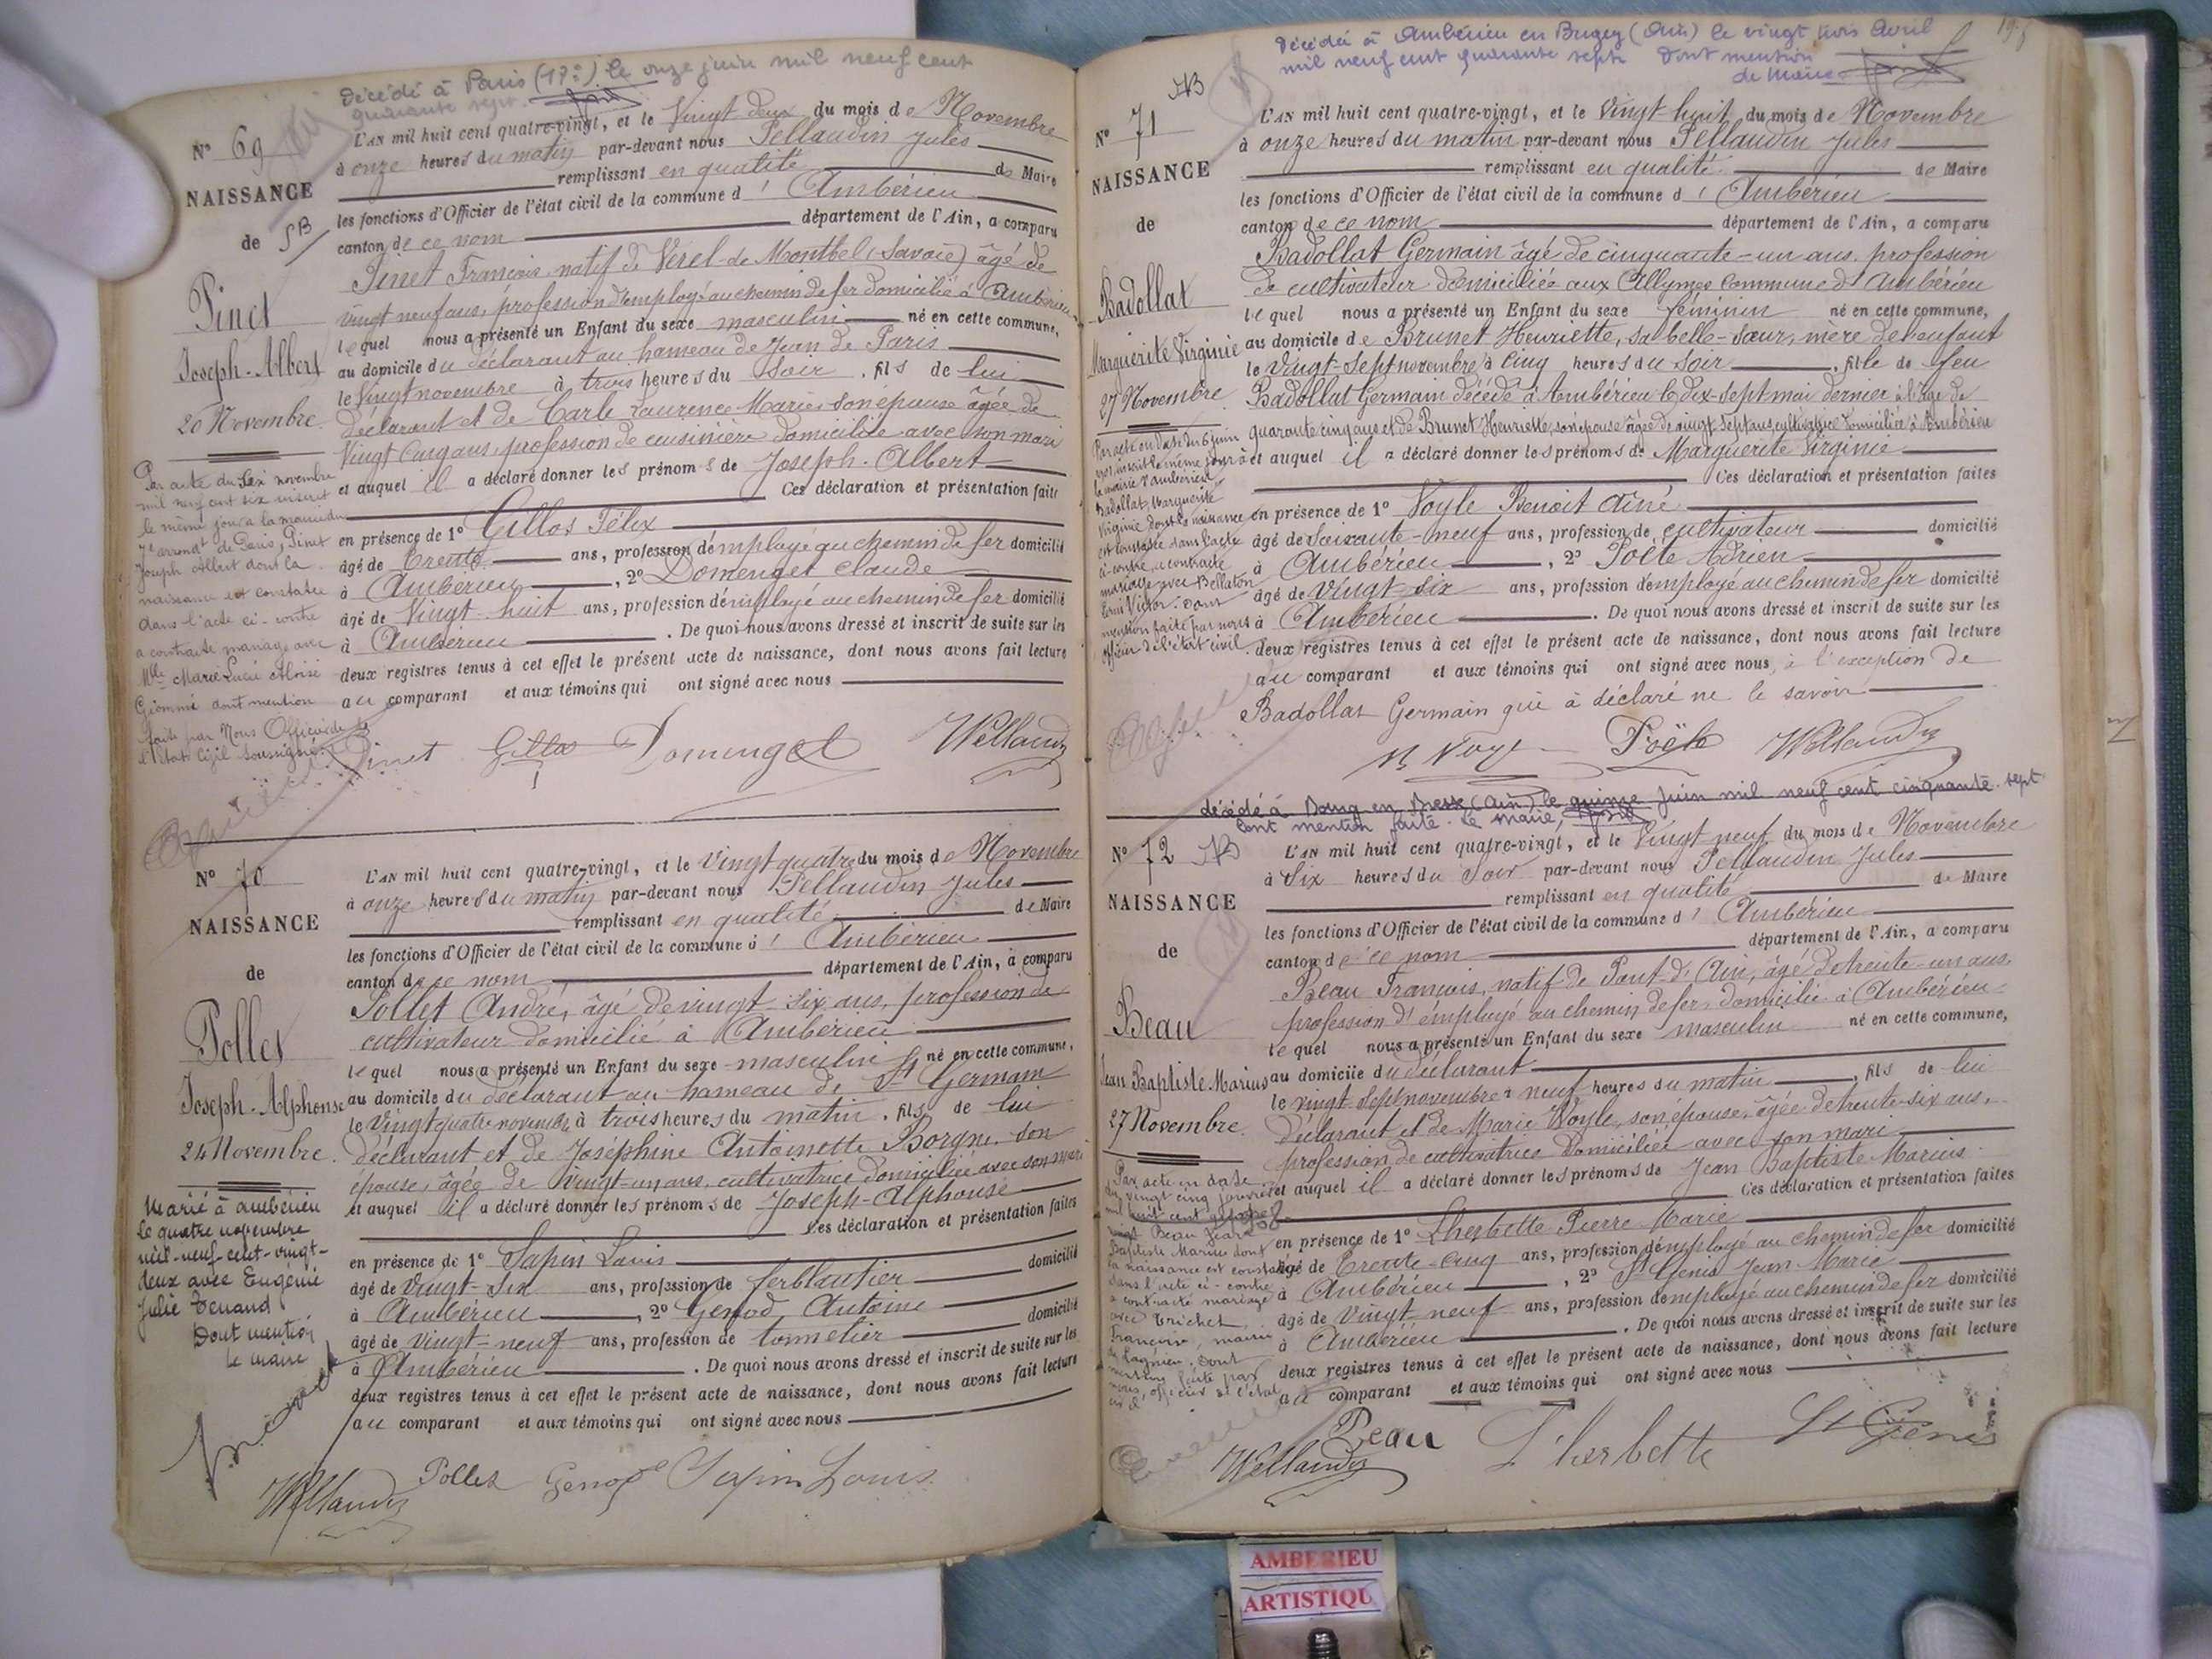 Décédé à Paris (17e) le onze juin mil neuf cent
quarante sept.
N° 69
NAISSANCE
de
Pinet
Joseph-Albert
20 Novembre
L'AN mil huit cent quatre-vingt, et le Vingt deux du mois de Novembre
à onze heures du matin par-devant nous Pellaudin Jules
remplissant en qualité de Maire
les fonctions d'Officier de l'état civil de la commune d' Ambérieu
canton de ce nom département de l'Ain, a comparu
Pinet François natif de Verel-de-Montbel (Savoie) âgé de
vingt neuf ans, profession d'employé au chemin de fer domicilié à Ambérieu
lequel nous a présenté un Enfant du sexe masculin né en cette commune,
au domicile du déclarant au hameau de Jean de Paris
le Vingt novembre à trois heures du soir, fils de lui
déclarant et de Carle Laurence Marie son épouse âgée de
Vingt cinq ans, profession de cuisinière domiciliée avec son mari
et auquel il a déclaré donner les prénoms de Joseph-Albert
Ces déclaration et présentation faites
en présence de 1° Gillos Félix
âgé de trente ans, profession d'employé au chemin de fer domicilié
à Ambérieu, 2° Domenget Claude
âgé de Vingt-huit ans, profession d'employé au chemin de fer domicilié
à Ambérieu. De quoi nous avons dressé et inscrit de suite sur les
deux registres tenus à cet effet le présent acte de naissance, dont nous avons fait lecture
au comparant et aux témoins qui ont signé avec nous
Par acte du six novembre
mil neuf cent six inscrit
le même jour à la mairie du
arrondt de Paris, Pinet
Joseph Albert dont la
naissance est constatée
dans l'acte ci-contre
a contracté mariage avec
Mlle Marie Lucie
dont mention
faite par Nous Officier de
l'état civil soussigné.
Pinet Gillos Domenget
N° 70
NAISSANCE
de
Pollet
Joseph-Alphonse
24 Novembre.
L'AN mil huit cent quatre-vingt, et le Vingt quatre du mois de Novembre
à onze heures du matin par-devant nous Pellaudin Jules
remplissant en qualité de Maire
les fonctions d'Officier de l'état civil de la commune d' Ambérieu
canton de ce nom département de l'Ain, a comparu
Pollet André, âgé de vingt-six ans, profession de
cultivateur domicilié à Ambérieu
lequel nous a présenté un Enfant du sexe masculin né en cette commune,
au domicile du déclarant au hameau de St Germain
le Vingt quatre novembre à trois heures du matin, fils de lui
déclarant et de Joséphine Antoinette Borgne son
épouse, âgée de vingt-un ans, cultivatrice domiciliée avec son mari
et auquel il a déclaré donner les prénoms de Joseph-Alphonse
Ces déclaration et présentation faites
en présence de 1° Sapin Louis
âgé de vingt-six ans, profession de ferblantier domicilié
à Ambérieu, 2° Genod Antoine
âgé de vingt-neuf ans, profession de tonnelier domicilié
à Ambérieu. De quoi nous avons dressé et inscrit de suite sur les
deux registres tenus à cet effet le présent acte de naissance, dont nous avons fait lecture
au comparant et aux témoins qui ont signé avec nous
Marié à Ambérieu
le quatre novembre
mil-neuf-cent-vingt-
deux avec Eugénie
Julie Tenand
Dont mention
Le maire
Pollet Genod Sapin Louis
Décédée à Ambérieu en Bugey (Ain) le vingt trois Avril
mil neuf cent quarante sept. Dont mention
N° 71
NAISSANCE
de
Badollat
Marguerite Virginie
27 Novembre
L'AN mil huit cent quatre-vingt, et le Vingt-huit du mois de Novembre
à onze heures du matin par-devant nous Pellaudin Jules
remplissant en qualité de Maire
les fonctions d'Officier de l'état civil de la commune d' Ambérieu
canton de ce nom département de l'Ain, a comparu
Badollat Germain âgé de cinquante-un ans, profession
de cultivateur domiciliée aux Allymes commune d'Ambérieu
lequel nous a présenté un Enfant du sexe féminin né en cette commune,
au domicile de Brunet Henriette, sa belle-sœur, mère de l'enfant
le Vingt-sept novembre à cinq heures du soir, fille de feu
Badollat Germain décédé à Ambérieu le dix-sept mai dernier à l'âge de
quarante cinq ans et de Brunet Henriette, son épouse âgée de vingt-sept ans, cultivatrice domiciliée à Ambérieu
et auquel il a déclaré donner les prénoms de Marguerite Virginie
Ces déclaration et présentation faites
en présence de 1° Voyle Benoit aîné
âgé de soixante-neuf ans, profession de cultivateur domicilié
à Ambérieu, 2° Poëte Adrien
âgé de vingt-six ans, profession d'employé au chemin de fer domicilié
à Ambérieu. De quoi nous avons dressé et inscrit de suite sur les
deux registres tenus à cet effet le présent acte de naissance, dont nous avons fait lecture
au comparant et aux témoins qui ont signé avec nous, à l'exception de
Badollat Germain qui a déclaré ne le savoir
Par acte en date du 6 juin
inscrit le même jour à
la mairie d'Ambérieu
Badollat Marguerite
Virginie dont la naissance
est constatée dans l'acte
ci-contre, a contracté
mariage avec
Victor. Dont
mention faite par nous
officier de l'état civil.
Poëte
décédé à Bourg en Bresse (Ain) le quinze juin mil neuf cent cinquante sept
dont mention faite. Le maire,
N° 72
NAISSANCE
de
Beau
Jean Baptiste Marius
27 Novembre.
L'AN mil huit cent quatre-vingt, et le Vingt neuf du mois de Novembre
à six heures du soir par-devant nous Pellaudin Jules
remplissant en qualité de Maire
les fonctions d'Officier de l'état civil de la commune d' Ambérieu
canton de ce nom département de l'Ain, a comparu
Beau François, natif de Pont-d'Ain, âgé de trente-un ans,
profession d'employé au chemin de fer, domicilié à Ambérieu
lequel nous a présenté un Enfant du sexe masculin né en cette commune,
au domicile du déclarant
le vingt-sept novembre à neuf heures du matin, fils de lui
déclarant et de Marie Voyle, son épouse, âgée de trente-six ans,
profession de cultivatrice domiciliée avec son mari
et auquel il a déclaré donner les prénoms de Jean Baptiste Marius
Ces déclaration et présentation faites
en présence de 1° Lherbette Pierre Marie
âgé de Trente-cinq ans, profession d'employé au chemin de fer domicilié
à Ambérieu, 2° St Genis Jean Marie
âgé de Vingt-neuf ans, profession d'employé au chemin de fer domicilié
à Ambérieu. De quoi nous avons dressé et inscrit de suite sur les
deux registres tenus à cet effet le présent acte de naissance, dont nous avons fait lecture
au comparant et aux témoins qui ont signé avec nous
Par acte en date
du vingt cinq janvier
Beau Jean
Baptiste Marius dont
la naissance est constatée
dans l'acte ci-contre
a contracté mariage
avec Trichet
Françoise, mairie
de Lagnieu. Dont
mention faite par
nous, officier de l'état
Beau L'herbette St Genis
AMBERIEU
ARTISTIQU